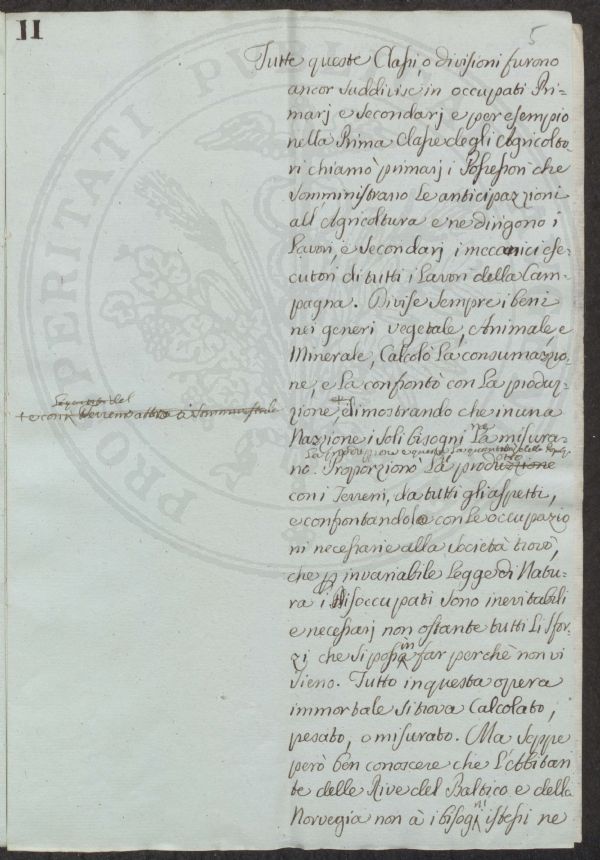 11
5
Tutte queste Classi, o divisioni furono
ancor suddivise in occupati Pri=
marj e Secondarj e per esempio
nella Prima Classe degli Agricolto=
ri chiamò primarj i Possessori che
somministrano le anticipazzioni
all'Agricoltura e ne dirigono i
Lavori, e Secondarj i meccanici ese=
cutori di tutti i Lavori della Cam=
pagna. Divise sempre i beni
nei generi vegetale, Animale, e
Minerale, Calcolò la consumazzio=
ne, e la confrontò con la produz=
zione, + dimostrando che in una
Nazzione i soli bisogni ne la misura=
no. Proporzionò la produzzione
con i Terreni, da tutti gli aspetti,
e confrontandola con le occupazio
ni necessarie alla società trovò,
che per invariabile Legge di Natu=
ra i Disoccupati sono inevitabili
e necessarj non ostante tutti li sfor=
zi che si possin far perchè non vi
sieno. Tutto in questa opera
immortale si trova Calcolato,
pesato, o misurato. Ma seppe
però ben conoscere che l'Abitan
te delle Rive del Baltico e della
Norvegia non à i bisogni istessi ne
+ e con Terreno atto a somministrarle
PROSPERITATI PUBLICAE